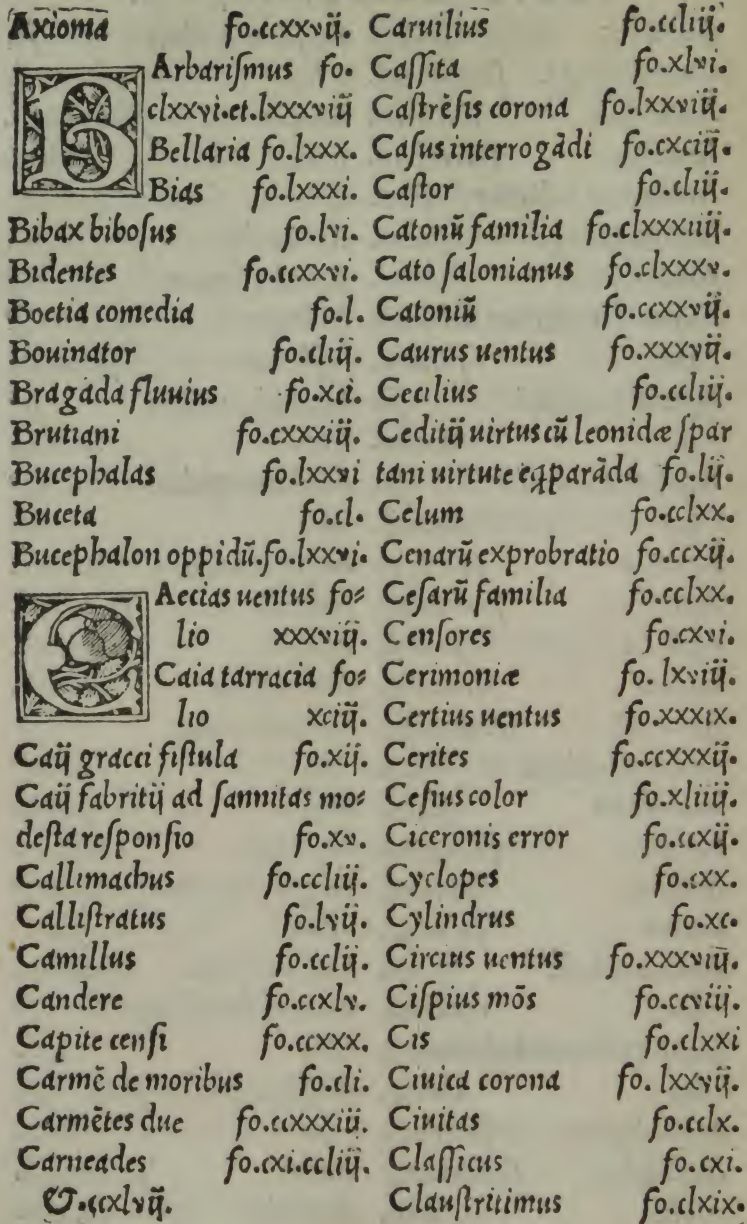 Axioma fo.ccxxvij.
BArbariſmus fo.
clxxvi.et.lxxxviij
Bellaria fo.lxxx.
Bias fo.lxxxi.
Bibax biboſus fo.lvi.
Bidentes fo.ccxxvi.
Boetia comedia fo.l.
Bouinator fo.cliij.
Bragada fluuius fo.xci.
Brutiani fo.cxxxiij.
Bucephalas fo.lxxvi
Buceta fo.cl.
Bucephalon oppidũ.fo.lxxvi.
CAecias uentus fo⸗
lio xxxviij.
Caia tarracia fo⸗
lio xciij.
Caij gracci fiſtula fo.xij.
Caij fabritij ad ſannitas mo⸗
deſta reſponſio fo.xv.
Callimachus fo.ccliij.
Calliſtratus fo.lvij.
Camillus fo.cclij.
Candere fo.ccxlv.
Capite cenſi fo.ccxxx.
Carmẽ de moribus fo.cli.
Carmẽtes due fo.ccxxxiii.
Carneades fo.cxi.ccliij.
&.ccxlvij.
Caruilius fo.ccliij.
Caſſita fo.xlvi.
Caſtrẽſis corona fo.lxxviij.
Caſus interrogãdi fo.cxcij.
Caſtor fo.cliij.
Catonũ familia fo.clxxxiiij.
Cato ſalonianus fo.clxxxv.
Catoniũ fo.ccxxvij.
Caurus uentus fo.xxxvij.
Cecilius fo.ccliij.
Ceditij uirtus cũ leonidæ ſpar
tani uirtute eq̨parãda fo.lij.
Celum fo.cclxx.
Cenarũ exprobratio fo.ccxij.
Ceſarũ familia fo.cclxx.
Cenſores fo.cxvi.
Cerimoniæ fo. lxviij.
Certius uentus fo.xxxix.
Cerites fo.ccxxxij.
Ceſius color fo.xliiij.
Ciceronis error fo.ccxij.
Cyclopes fo.cxx.
Cylindrus fo.xc.
Circius uentus fo.xxxviij.
Ciſpius mõs fo.ccviij.
Cis fo.clxxi
Ciuica corona fo. lxxvij.
Ciuitas fo.cclx.
Claſſicus fo.cxi.
Clauſtritimus fo.clxix.